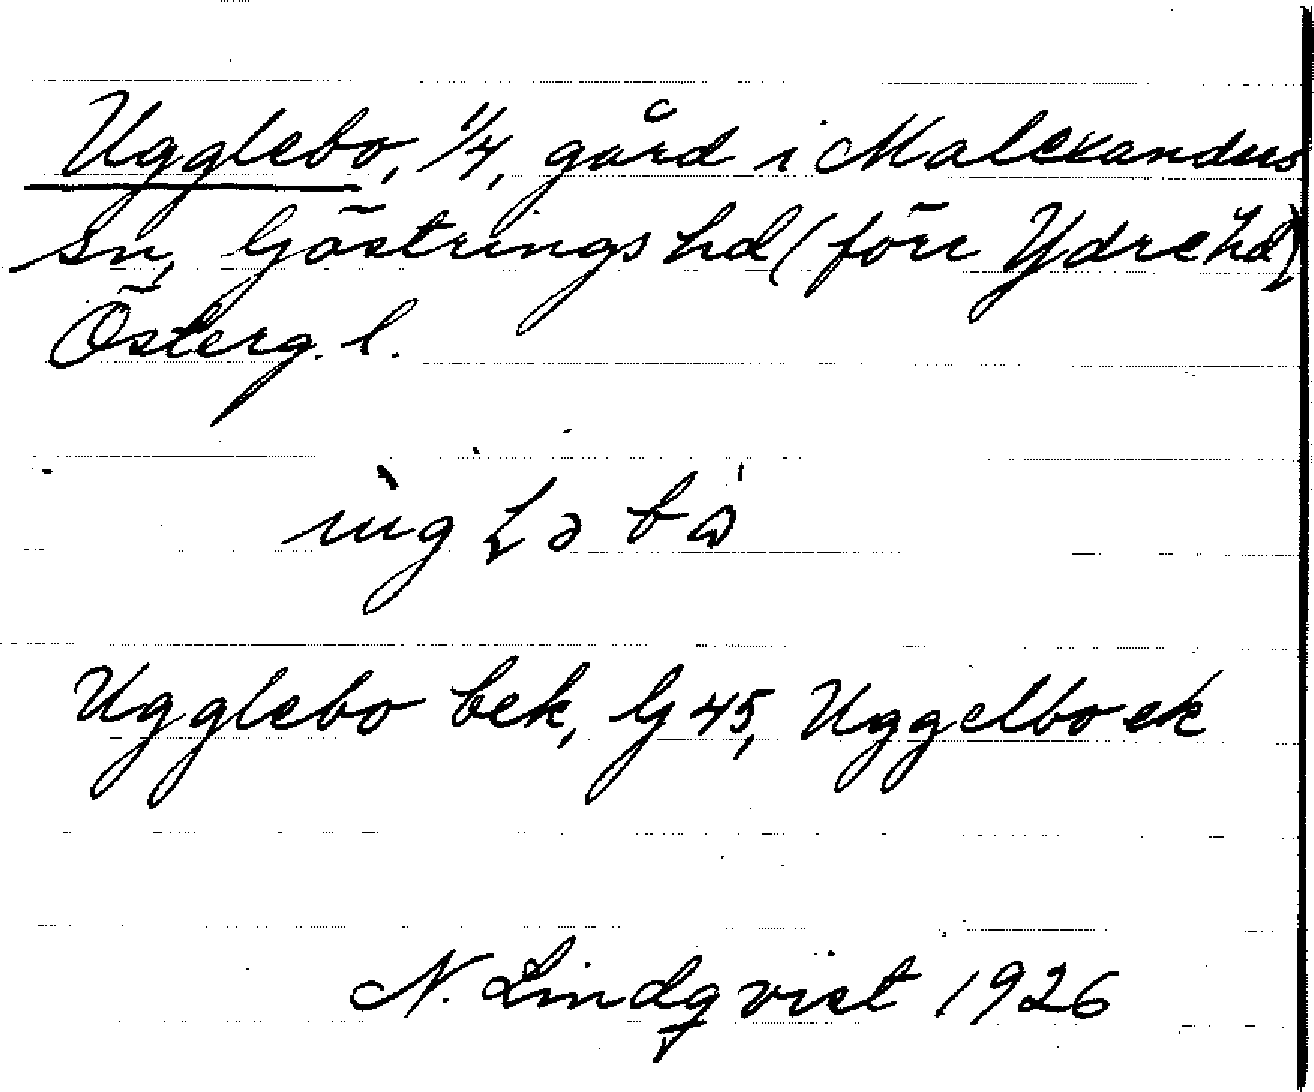 Ugglebo, 1/4, gård i Malexanders
sn, Göstrings hd (förr Ydre hd)
Österg. l.
Ugglebo bek, G 45, Uggelbo ek
N. Lindqvist 1926